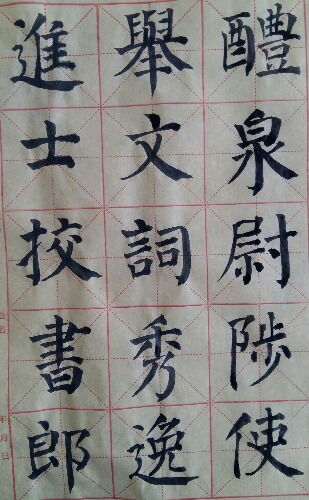 醴泉尉陟使
舉文詞秀逸
進士挍書郎
姓名
年月日